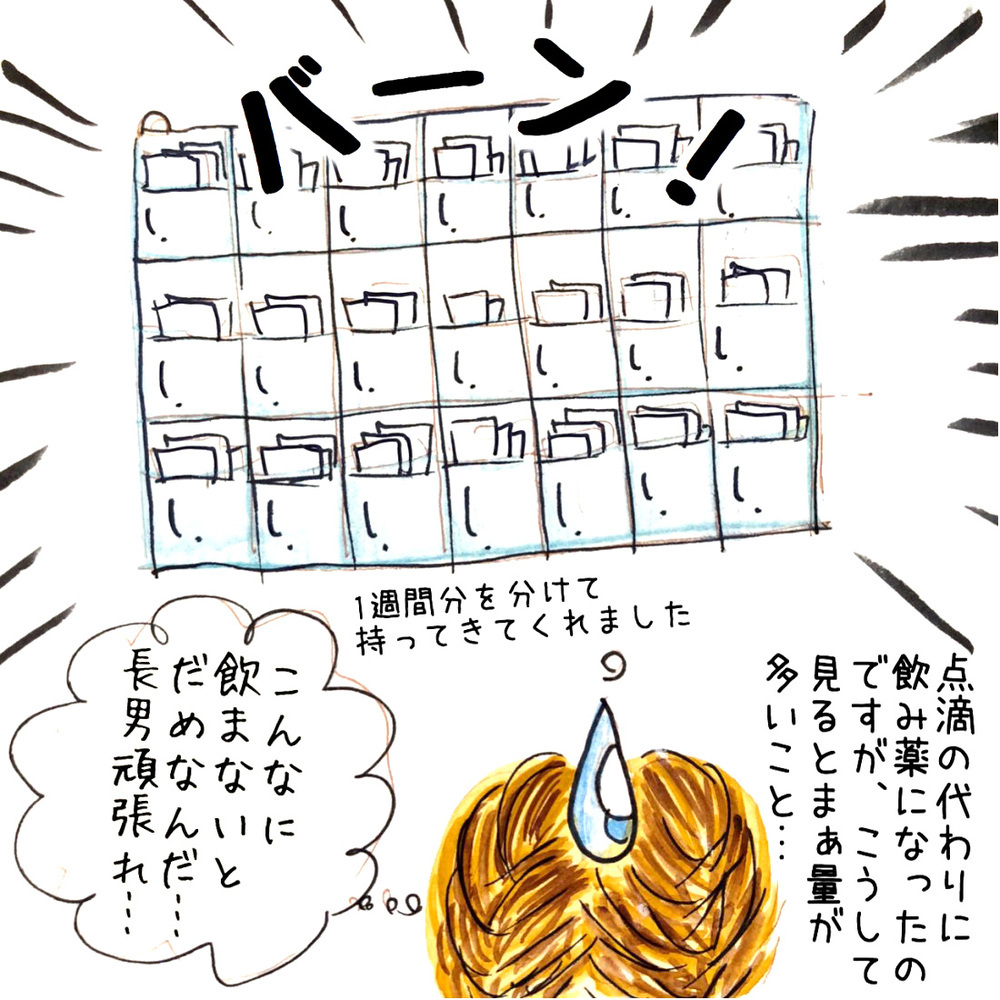 バーン!
1週間分を分けて
持ってきてくれました
点滴の代わりに
飲み薬になったの
ですが、こうして
見るとまぁ量が
多いこと…
こんなに
飲まないと
だめなんだ……
長男頑張れ……